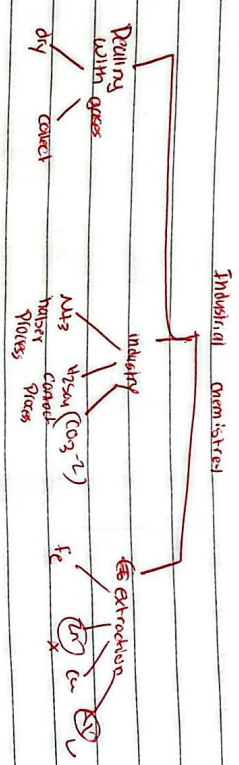 Industrial Chemistrey
Dealling
with gases
dry
collect
industrey
NH3
haber
Process
H2SO4
contact
Process
(CO3-2)
extraction
Fe
Zn
x
Cu
Al
✓